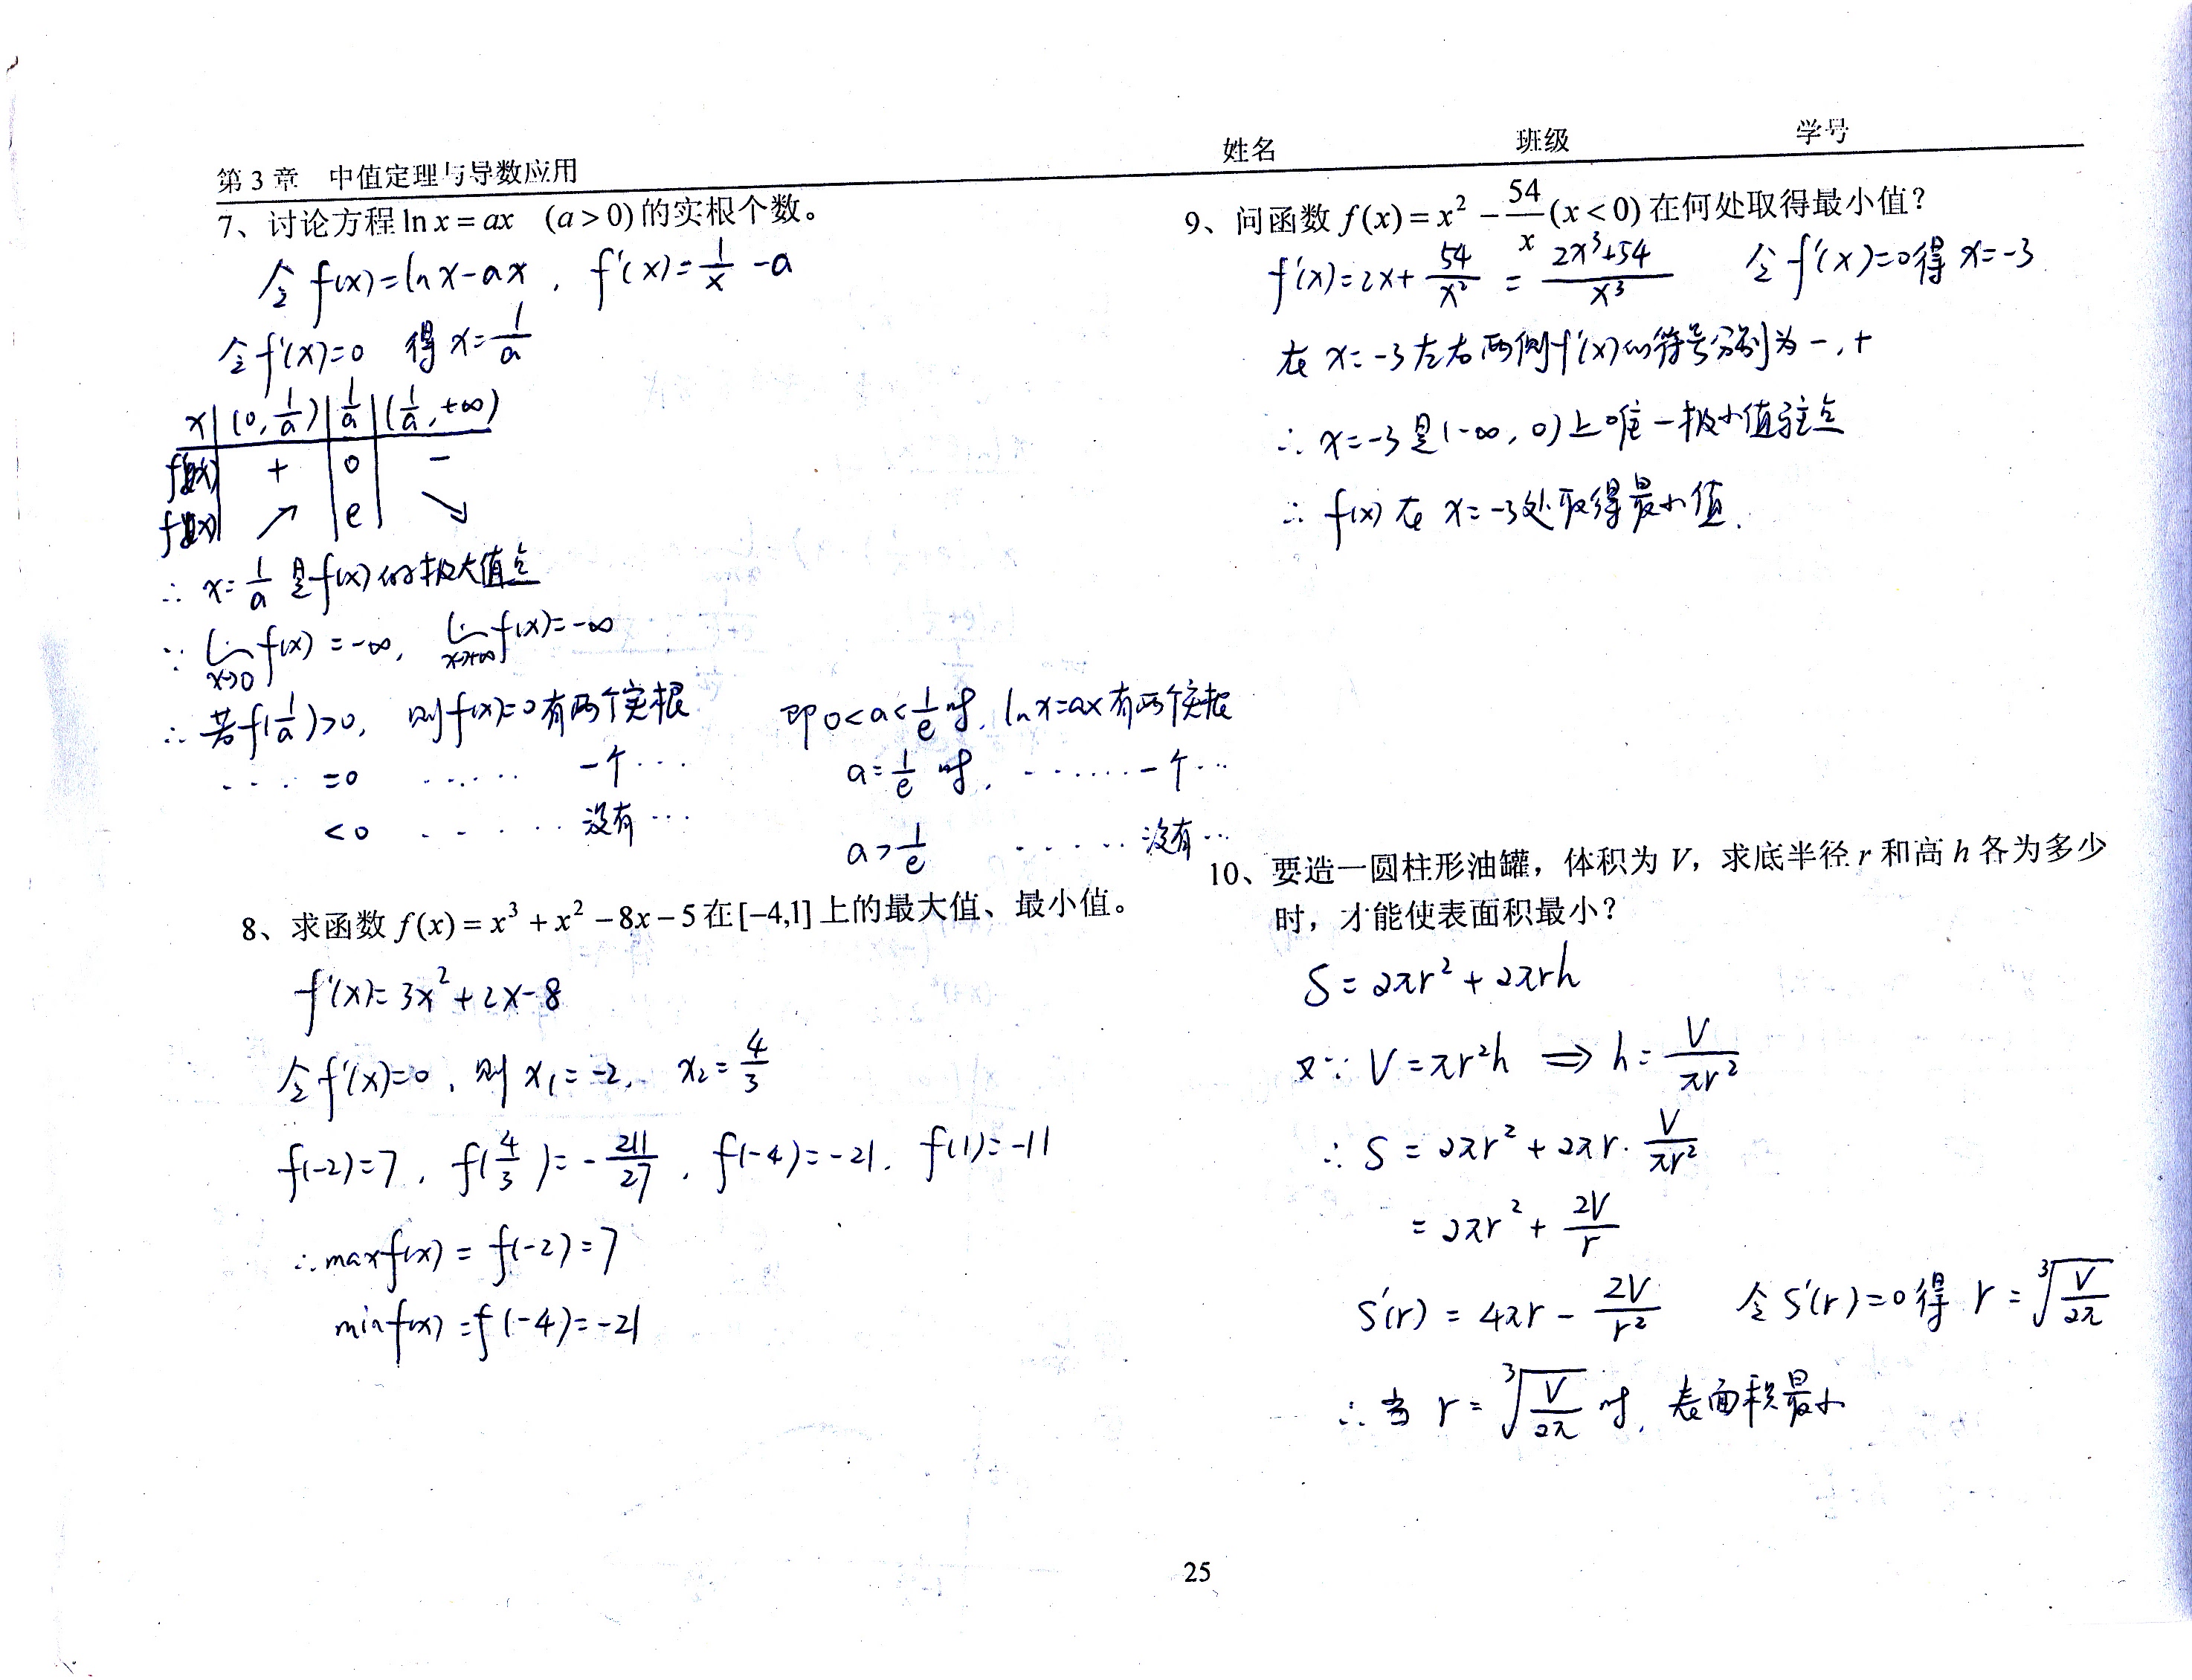 第 3 章 中值定理与导数应用 姓名 班级 学号
7、讨论方程 ln x = ax (a > 0) 的实根个数。
令 f(x)=ln x-ax , f'(x)=1/x -a
令 f'(x)=0 得 x=1/a
x | (0, 1/a) | 1/a | (1/a, +∞)
f'(x) + 0 -
f(x) ↗ e ↘
∴ x=1/a 是 f(x) 的极大值点
∵ lim x→0 f(x) =-∞, lim x→+∞ f(x)=-∞
∴ 若 f(1/a)>0, 则 f(x)=0 有两个实根
.... =0 ..... 一个...
<0 ..... 没有...
即 0<a<1/e 时, ln x=ax 有两个实根
a=1/e 时, ...... 一个...
a>1/e ..... 没有...
8、求函数 f(x) = x³ + x² − 8x − 5 在 [−4,1] 上的最大值、最小值。
f'(x)= 3x²+2x-8
令 f'(x)=0, 则 x₁=-2, x₂=4/3
f(-2)=7, f(4/3)=-211/27, f(-4)=-21, f(1)=-11
∴ max f(x) = f(-2)=7
min f(x) = f(-4)=-21
9、问函数 f(x) = x² − 54/x (x < 0) 在何处取得最小值？
f'(x)=2x+ 54/x² = 2x³+54/x³ 令 f'(x)=0得 x=-3
在 x=-3左右两侧f'(x)的符号分别为-,+
∴ x=-3是(-∞, 0)上唯一极小值驻点
∴ f(x) 在 x=-3处取得最小值.
10、要造一圆柱形油罐，体积为 V，求底半径 r 和高 h 各为多少
时，才能使表面积最小？
S = 2πr² + 2πrh
又∵ V = πr²h ⟹ h = V/πr²
∴ S = 2πr² + 2πr · V/πr²
= 2πr² + 2V/r
S'(r) = 4πr - 2V/r² 令 S'(r)=0得 r = ∛(V/2π)
∴ 当 r = ∛(V/2π) 时, 表面积最小
25